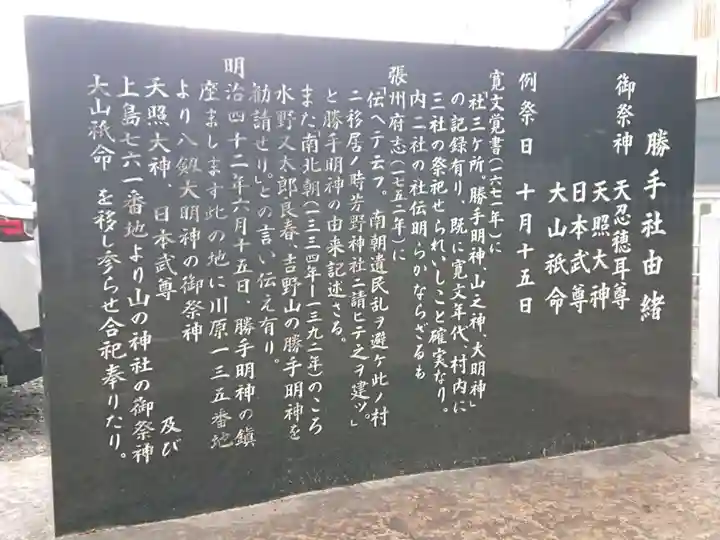 勝手社由緒
御祭神 天忍穂耳尊
天照大神
日本武尊
大山祇命
例祭日 十月十五日
寛文覚書(一六七一年)に
「社三ヶ所。勝手明神、山之神、大明神」
の記録有り、既に寛文年代、村内に
三社の祭祀せられいしこと確実なり。
内二社の社伝明らかならざるも
張州府志(一七五二年)に
「伝ヘテ云フ。南朝遺民乱ヲ避ケ此ノ村
ニ移居ノ時芳野神社ニ請ヒテ之ヲ建ツ」
と勝手明神の由来記述さる。
また「南北朝(一三三四年ー一三九二年)のころ
水野又太郎良春、吉野山の勝手明神を
勧請せり」との言い伝え有り。
明治四十二年六月十五日、勝手明神の鎮
座まします此の地に川原一三五番地
より八剱大明神の御祭神
天照大神、日本武尊 及び
上島七六一番地より山の神社の御祭神
大山祇命 を移し参らせ合祀奉りたり。